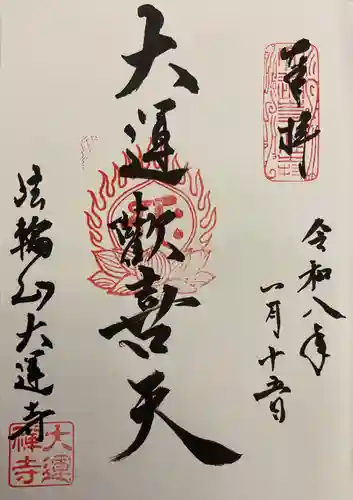 奉拝
令和八年
一月十五日
大運歓喜天
法輪山大運寺
大運
禅寺